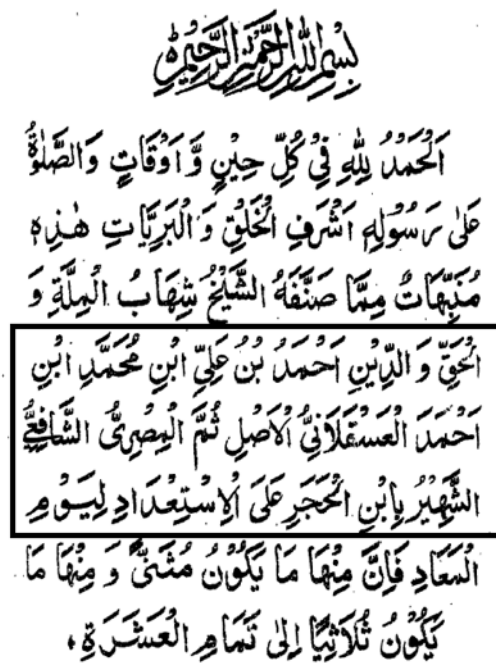 بِسْمِ اللهِ الرَّحْمٰنِ الرَّحِيْمِ
اَلْحَمْدُ لِلّٰهِ فِيْ كُلِّ حِيْنٍ وَّ اَوْقَاتٍ وَالصَّلٰوةُ
عَلٰى رَسُوْلِهٖ اَشْرَفِ الْخَلْقِ وَ الْبَرِيَّاتِ هٰذِهٖ
مُنَبِّهَاتٌ مِمَّا صَنَّفَهُ الشَّيْخُ شِهَابُ الْمِلَّةِ وَ
الْحَقِّ وَ الدِّيْنِ اَحْمَدُ بْنُ عَلِيِّ ابْنِ مُحَمَّدِ ابْنِ
اَحْمَدَ الْعَسْقَلَانِيُّ الْاَصْلِ ثُمَّ الْمِصْرِىُّ الشَّافِعِيُّ
الشَّهِيْرُ بِابْنِ الْحَجَرِ عَلَى الْاِسْتِعْدَادِ لِيَوْمِ
الْمَعَادِ فَاِنَّ مِنْهَا مَا يَكُوْنُ مُثَنًّى وَ مِنْهَا مَا
يَكُوْنُ ثُلَاثِيًّا اِلٰى تَمَامِ الْعَشَرَةِ،